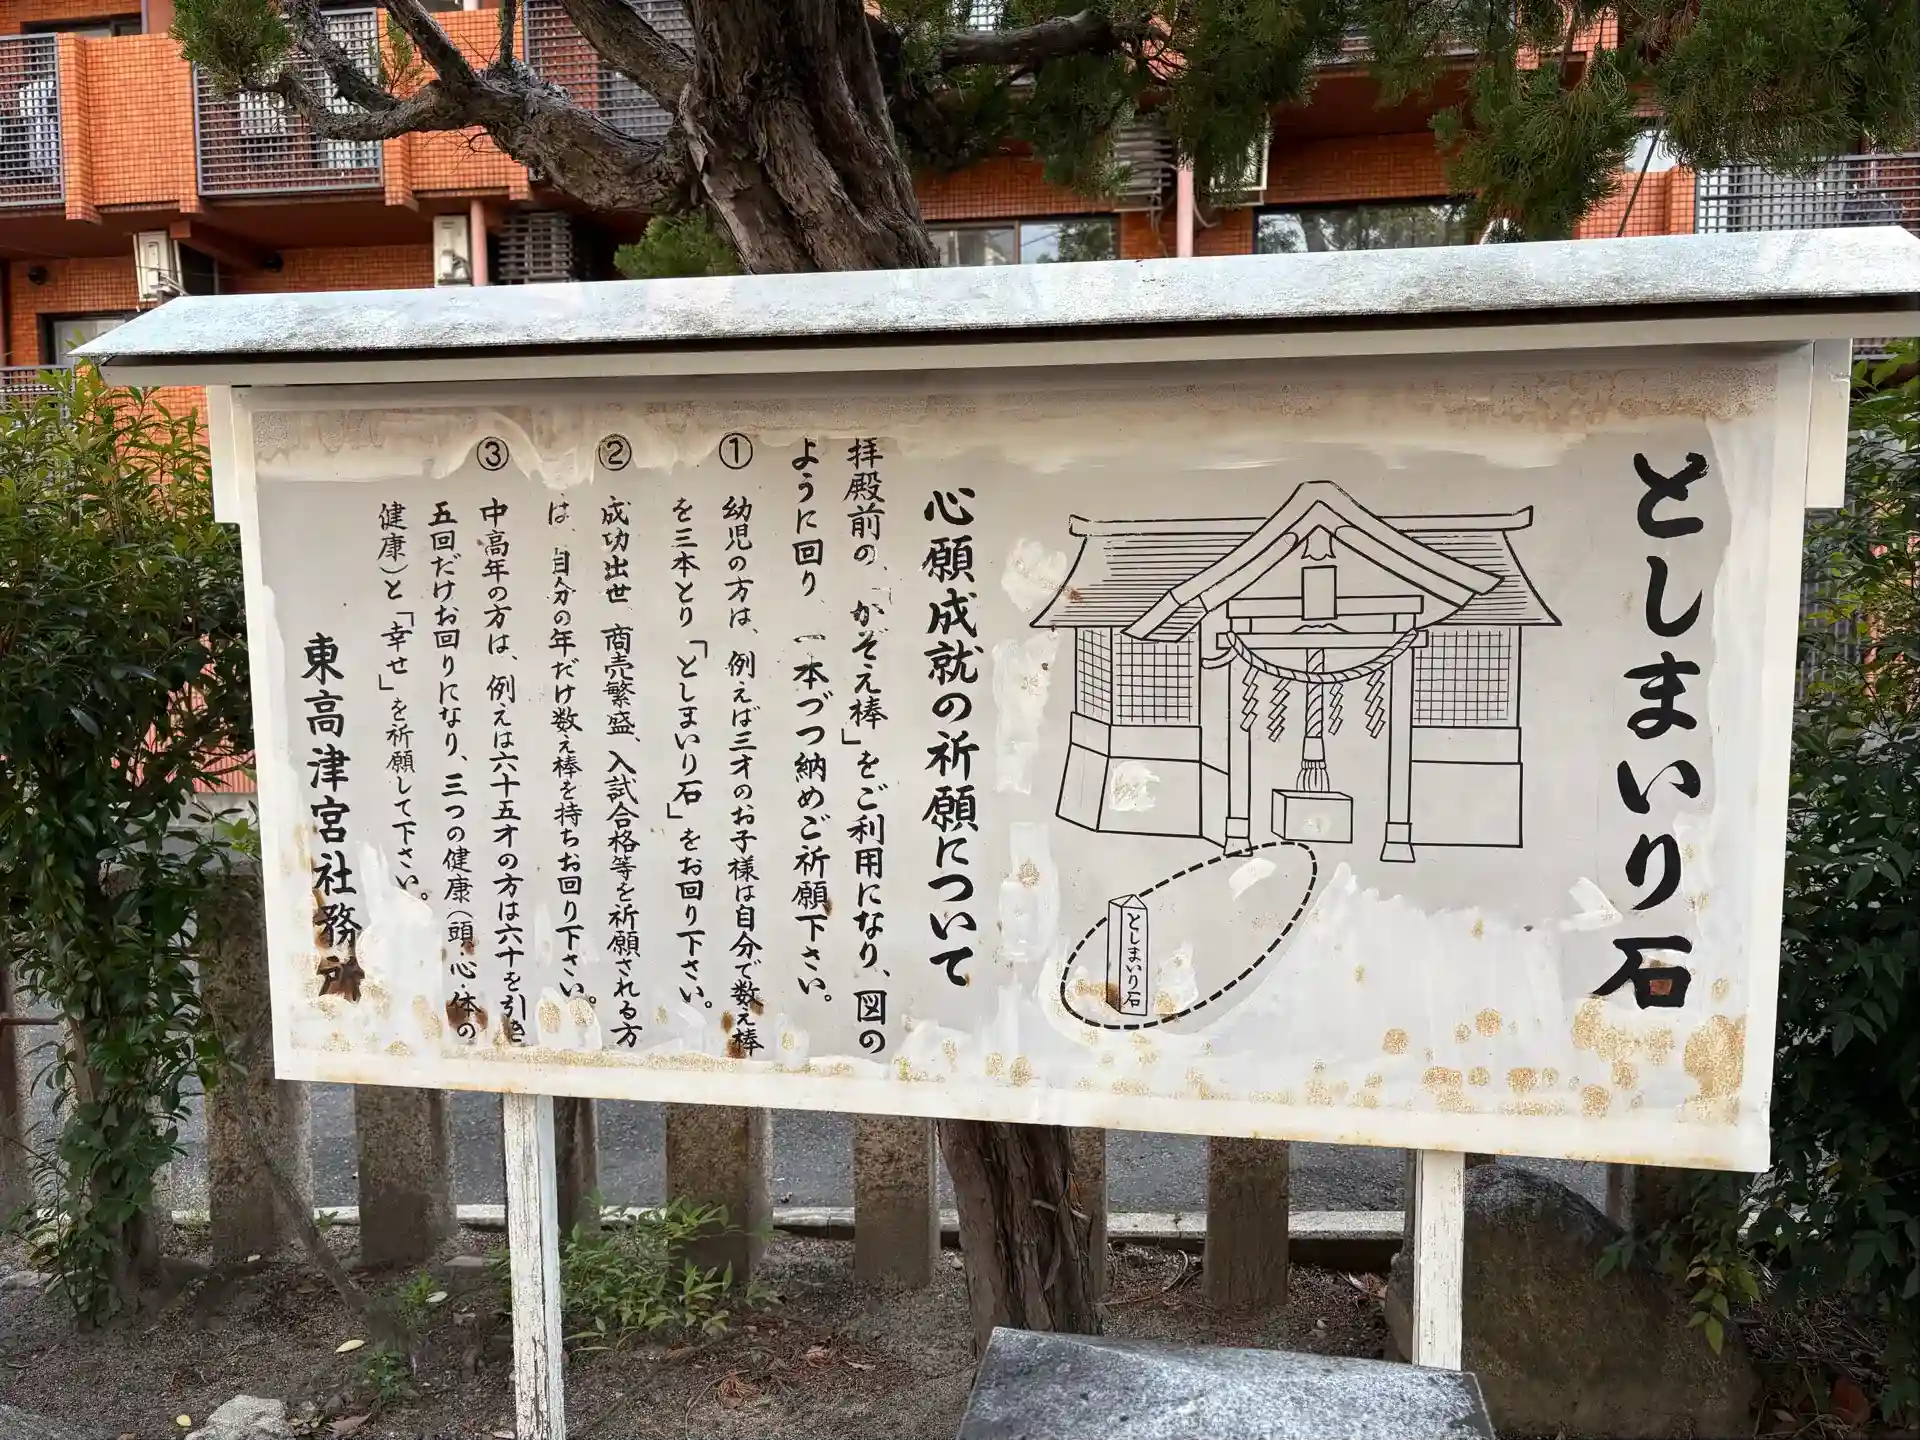 としまいり石
としまいり石
心願成就の祈願について
拝殿前の、「かぞえ棒」をご利用になり、図の
ように回り、一本づつ納めご祈願下さい。
① 幼児の方は、例えば三才のお子様は自分で数え棒
を三本とり「としまいり石」をお回り下さい。
② 成功出世 商売繁盛、入試合格等を祈願される方
は、自分の年だけ数え棒を持ちお回り下さい。
③ 中高年の方は、例えば六十五才の方は六十を引き
五回だけお回りになり、三つの健康(頭・心・体の
健康)と「幸せ」を祈願して下さい。
東高津宮社務所